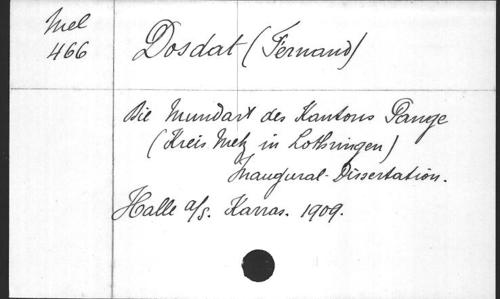 Mel
466
Dosdat (Fernand)
Die Mundart des Kantons Pange
(Kreis Metz in Lothringen)
Inaugural-Dissertation.
Halle a/S. Karras. 1909.